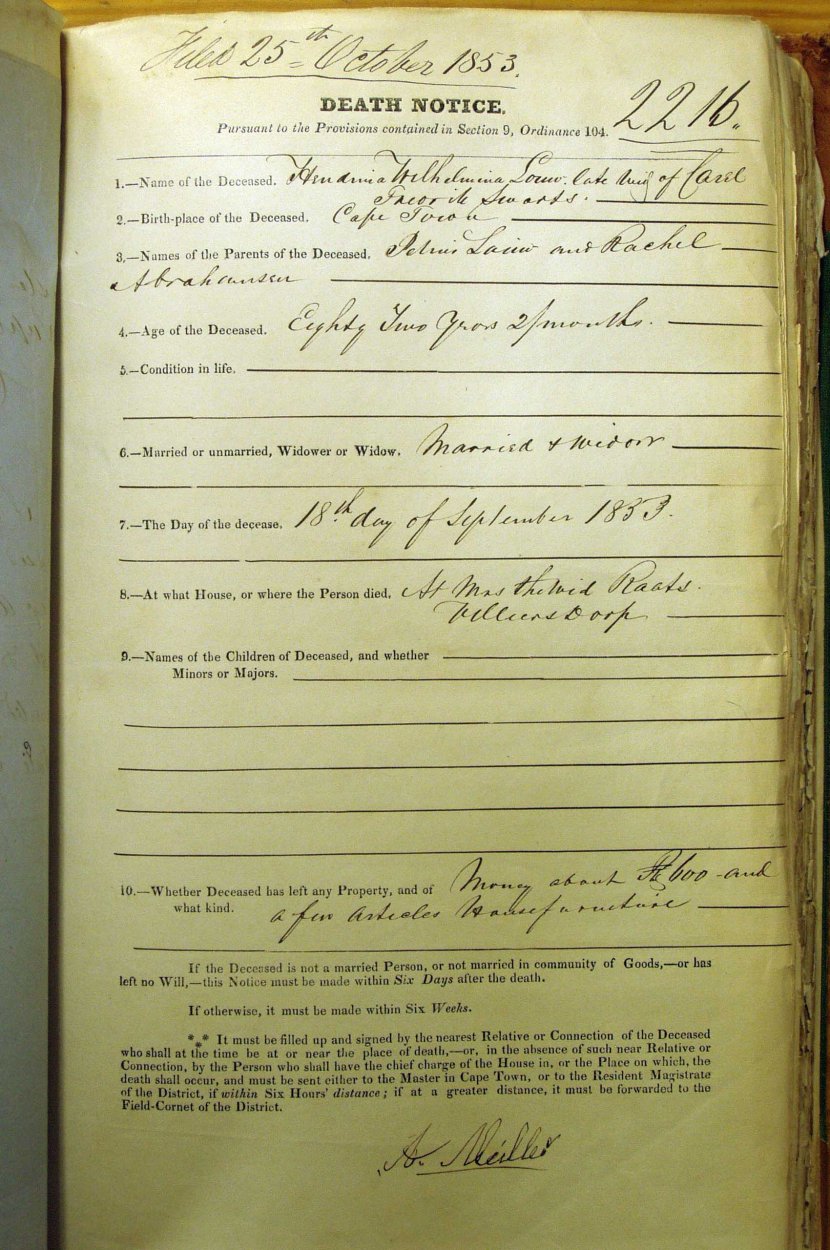 Filed 25th October 1853.
DEATH NOTICE.
Pursuant to the Provisions contained in Section 9, Ordinance 104.
2216.
1.—Name of the Deceased. Hendrina Wilhelmina Louw. late of Carel
Fredrik Swarts.
2.—Birth-place of the Deceased. Cape Town
3.—Names of the Parents of the Deceased. Petrus Louw and Rachel
Abrahamsen
4.—Age of the Deceased. Eighty Two Years 2/months.
5.—Condition in life.
6.—Married or unmarried, Widower or Widow. Married & Widow
7.—The Day of the decease. 18th day of September 1853.
8.—At what House, or where the Person died. At Mrs the Wid Raats.
Villiersdorp
9.—Names of the Children of Deceased, and whether
Minors or Majors.
10.—Whether Deceased has left any Property, and of Money about 600 - and
what kind. a few Articles Housefurniture
If the Deceased is not a married Person, or not married in community of Goods,—or has
left no Will,—this Notice must be made within Six Days after the death.
If otherwise, it must be made within Six Weeks.
*** It must be filled up and signed by the nearest Relative or Connection of the Deceased
who shall at the time be at or near the place of death,—or, in the absence of such near Relative or
Connection, by the Person who shall have the chief charge of the House in, or the Place on which, the
death shall occur, and must be sent either to the Master in Cape Town, or to the Resident Magistrate
of the District, if within Six Hours' distance; if at a greater distance, it must be forwarded to the
Field-Cornet of the District.